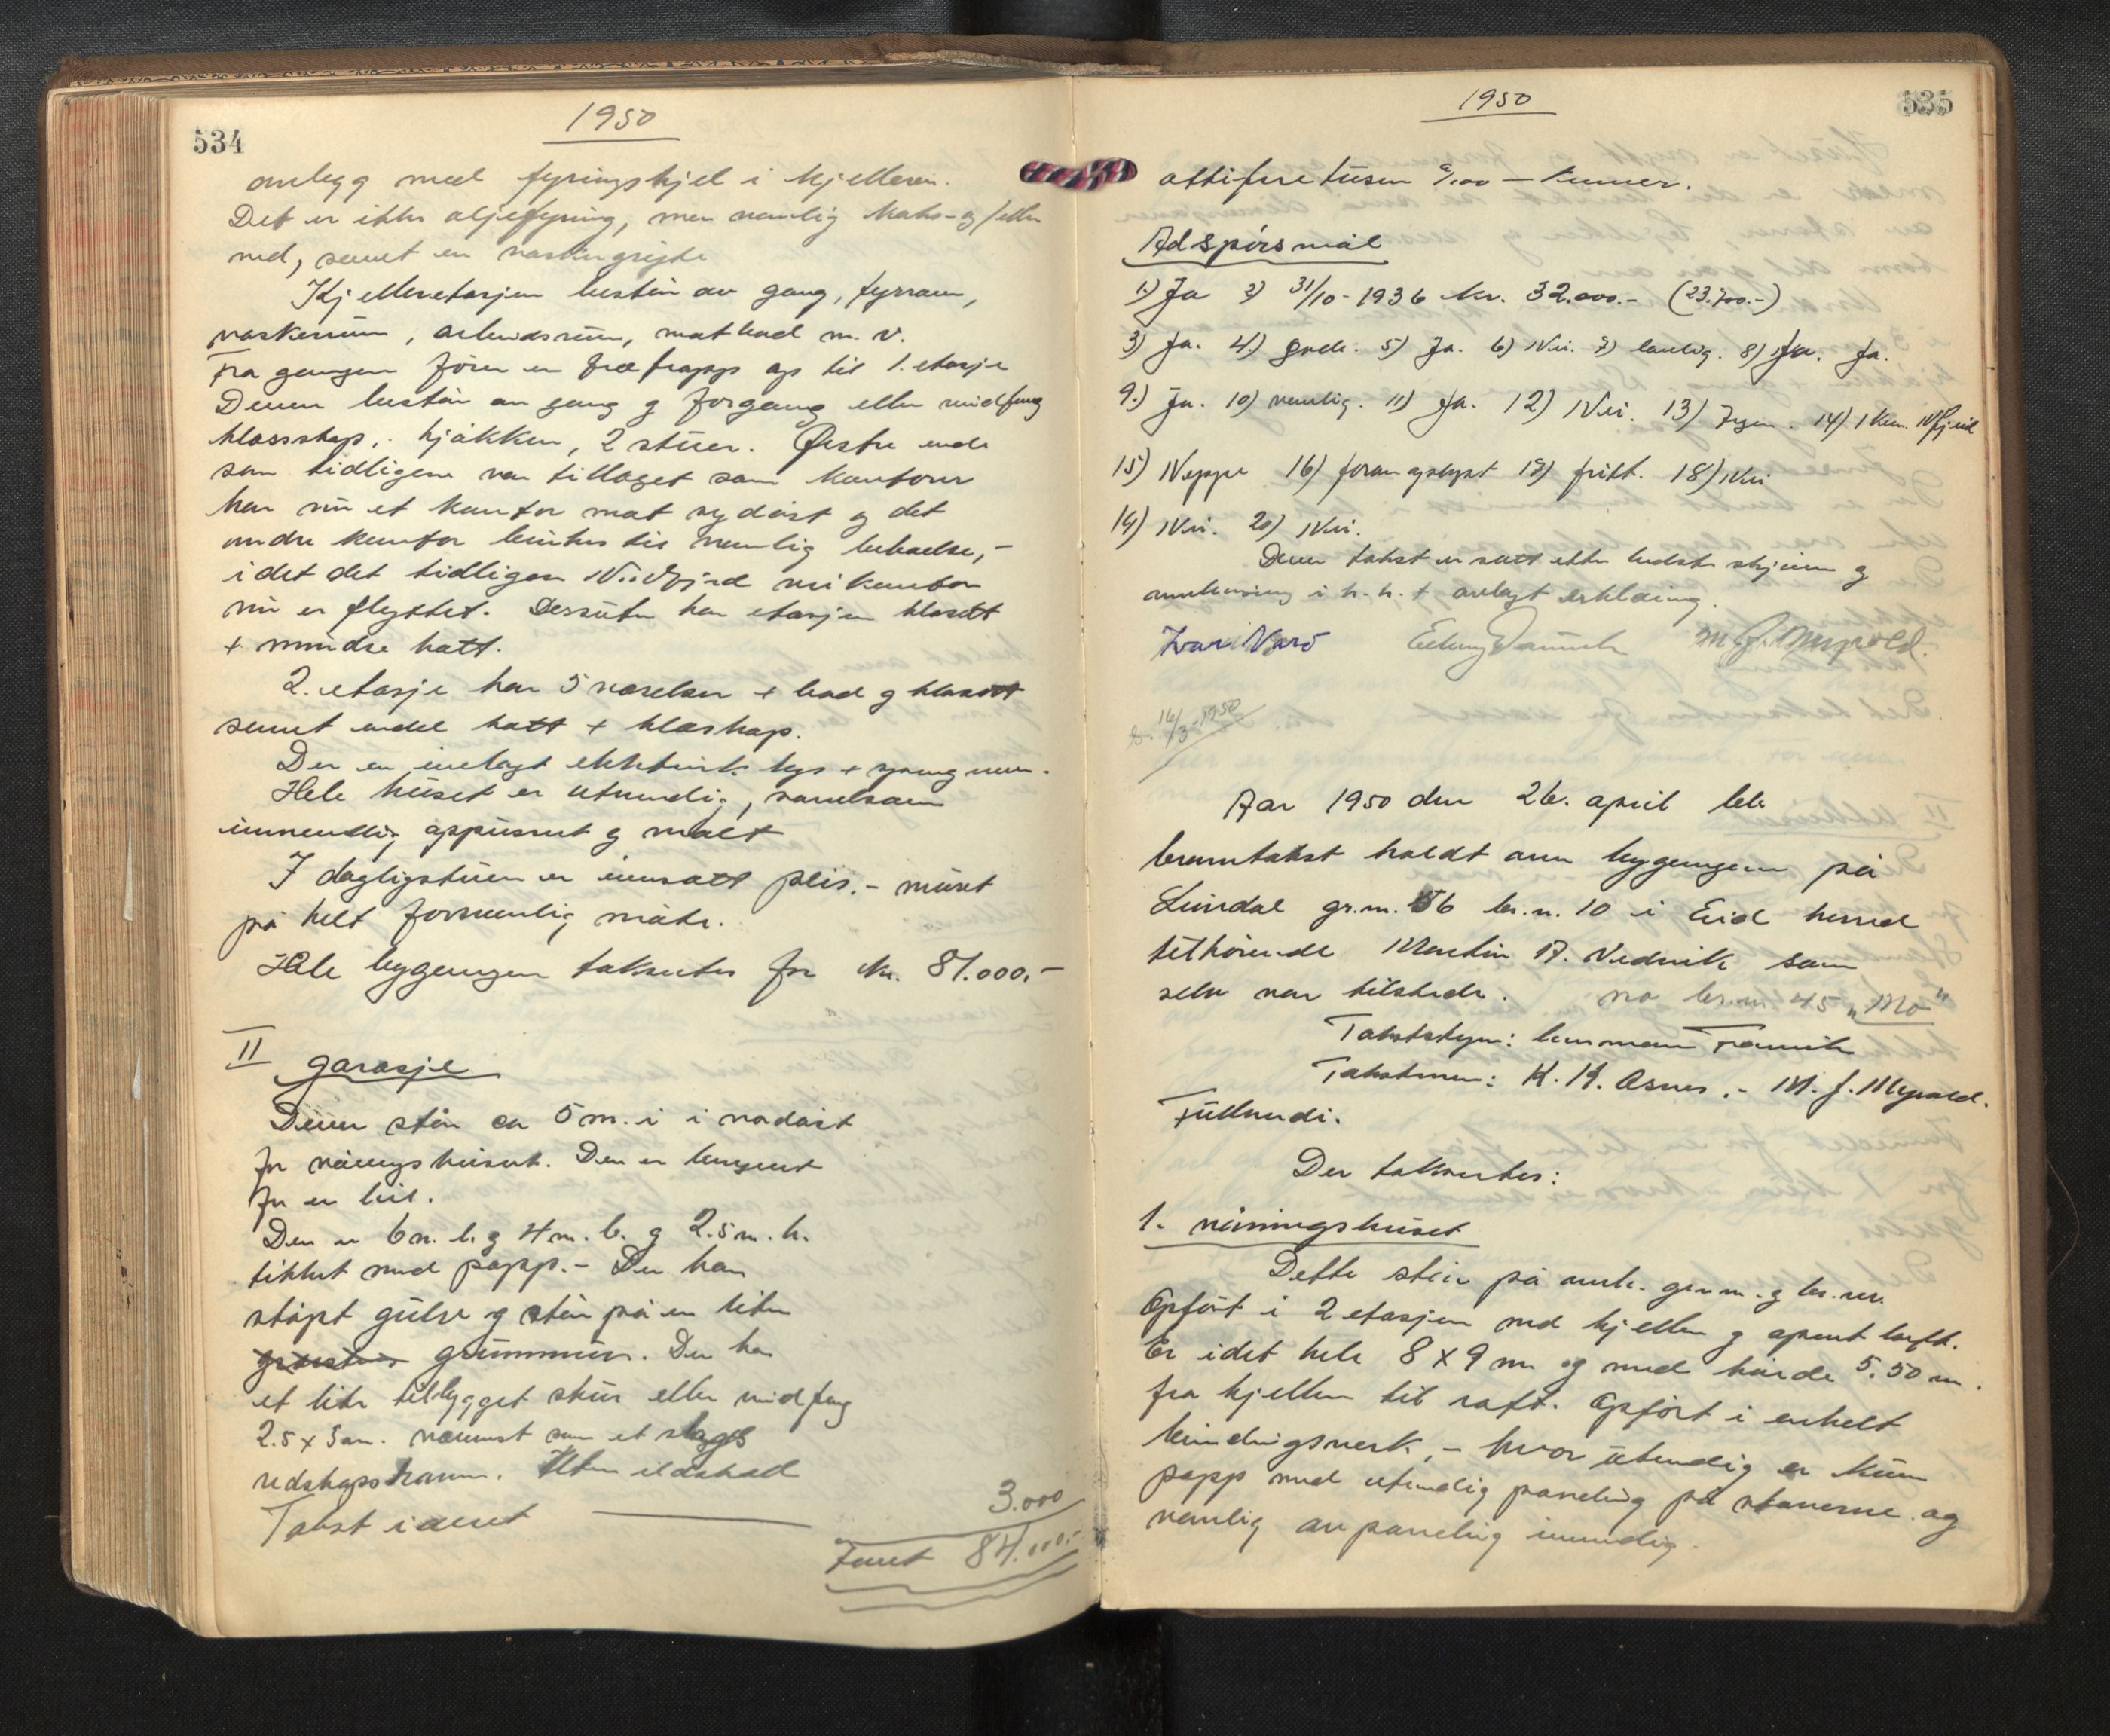 534
1950
anlegg med fyringskjel i kjelleren.
Det er ikke oljefyring, men vanlig koks- og/eller
ved, samt en
Kjelleretasjen består av gang, fyrrom,
vaskerum, arbeidsrum, matbod m. v.
Fra gangen fører en tretrapp op til 1. etasje
Denne består av gang og forgang eller vindfang
klesskap, kjøkken, 2 stuer. Østre ende
som tidligere var tillaget som kontorer
har nu et kontor mot sydøst og det
andre kontor benttes til vanlig beboelse,-
idet det tidligere Nordfjord
nu er flyttet. Dessuten har etasjen klosett
+ mindre kott.
2. etasje har 5 værelser + bad og klosett
samt endel kott + kleskap.
Der er innlagt elektrisk lys + springvann.
Hele huset er utvendig, såvelsom
innvendig oppusset og malt
I dagligstuen er innsatt peis.- muret
på helt forsvarlig måte.
Hele bygningen takseres for kr. 81.000.-
II garasje
Denne står ca 5 m. i i nordøst
for våningshuset. Den er beregnet
for en bil.
Den er 6 m. l. og 4 m. b. og 2.5 m. h.
tekket med papp.- Den har
støpt gulv og står på en liten
grunnmur. Den har
et lite tilbygget skur eller vindfang
2.5 x 3 m. nærmest som et slags
redskapsrom. Uten ildsted
Takst i alt
3.000
Tilsammen 84.000.-
1950
535
åttifiretusen 0/00 – kroner.
Ad spørsmål
1) Ja 2) 31/10-1936 kr. 32.000.- (23.700.-)
3) Ja. 4.) gode. 5) Ja. 6) Nei. 7) lovlig. 8) Ja. Ja.
9.) Ja. 10) vanlig. 11) Ja. 12) Nei. 13) Ingen. 14) 1 km. Nfjeid
15) Neppe 16) 19) fritt. 18) Nei
19) Nei. 20) Nei.
Denne takst er satt efter bedste skjønn og
i h. h. t. avlagt erklæring.
Ivar Navö
M. J. Myrold.
16/3-1950
Aar 1950 den 26. april ble
branntakst holdt over bygningene på
Lundal gr.nr. 56 br.n. 10 i Eid herred
tilhørende Martin A. Nedvik som
selv var tilstede. no br.nr. 45 "Mo"
Takstbestyrer: lensmann
Takstmenn: K. K. Osnes.- M. J. Myrold.
Fullmyndi.
Der takseres:
1. våningshuset
Dette står på ovenn. gr.nr. og br. nr.
Opført i 2 etasjer med kjeller og åpent loft.
Er i det hele 8 x 9 m. og med høide 5.50 m.
fra kjeller til raft. Opført i enkelt
bindingsverk, - hvor utvendig er kun
papp med utvendig paneling på stavene og
vanlig paneling innvendig.